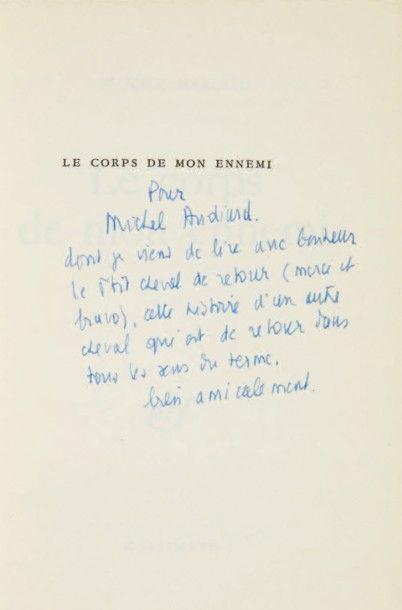 LE CORPS DE MON ENNEMI
Pour
Michel Audiard.
dont je viens de lire avec bonheur
le P'tit cheval de retour (merci et
bravo), cette histoire d'un autre
cheval qui est de retour dans
tous les sens du terme.
bien amicalement.